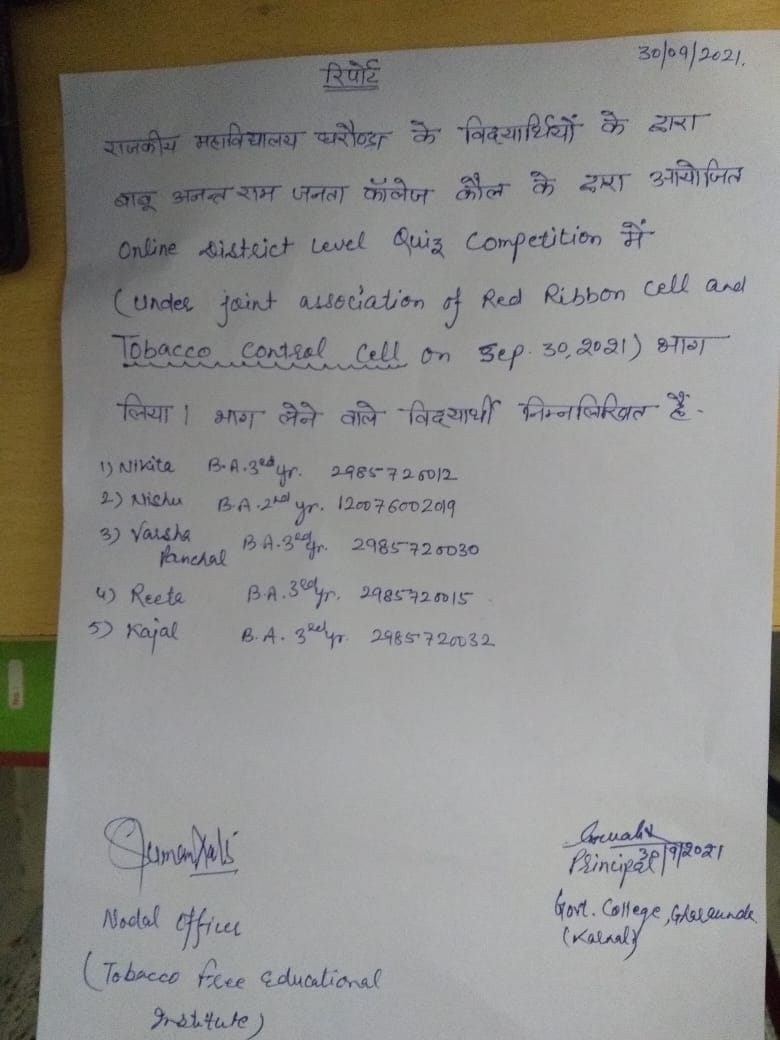 30/09/2021.
रिपोर्ट
राजकीय महाविद्यालय घरौण्डा के विद्यार्थियों के द्वारा
बाबू अनन्त राम जनता कॉलेज कौल के द्वारा आयोजित
Online District Level Quiz Competition में
(under joint association of Red Ribbon Cell and
Tobacco Control Cell on Sep. 30, 2021) भाग
लिया। भाग लेने वाले विद्यार्थी निम्नलिखित हैं-
1) Nikita B.A. 3rd yr. 2985720012
2) Nishu B.A. 2nd yr. 120076002019
3) Varsha Panchal B.A. 3rd yr. 2985720030
4) Reeta B.A. 3rd yr. 2985720015
5) Kajal B.A. 3rd yr. 2985720032
Nodal Officer
(Tobacco free Educational
Institute)
Principal 30/9/2021
Govt. College, Gharaunda
(Karnal)